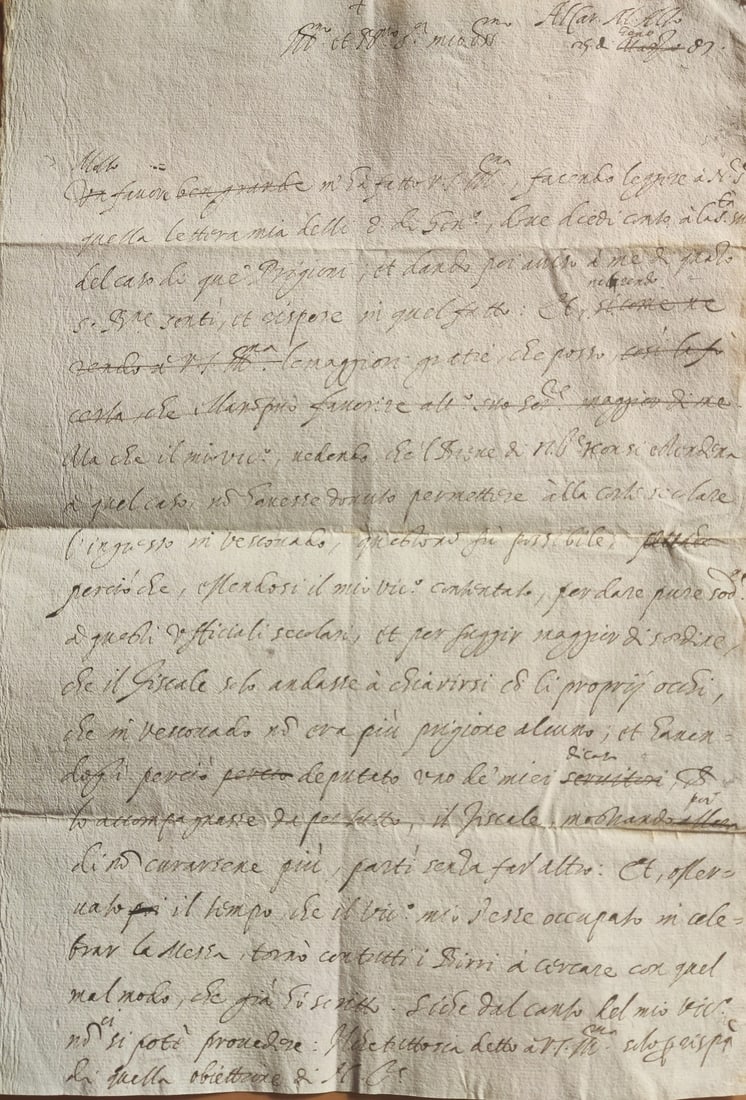 Al Car. Al Allo
Ill.mo et R.mo S.r mio oss.mo
25 di Genn.o Maggio 87.
Molto
Un favore ben grande m'ha fatto V.S. Ill.ma, facendo leggere à N.S.
quella lettera mia delli 8. di Gen.o, dove diedi conto à la S.tà sua
del caso di que' Prigioni, et dando poi aviso à me di quanto
S. B.ne sentì, et rispose in quel fatto: Et, si come ne
rendendo
rendo à V.S. Ill.ma le maggiori gratie, che posso, così la fo
certa, che favorire maggior di me.
Ma che il mio Vic.o, vedendo, che'l di non si
à quel caso, nõ havesse dovuto permettere àlla corte secolare
l'ingresso in Vescovado, questo nõ fù possibile;
perciò che, essendosi il mio Vic.o contentato, per dare pure sod.ne
à questi Ufficiali secolari, et per fuggir maggior disordine,
che il Fiscale solo andasse à chiarirsi cõ li proprij occhi,
che in Vescovado nõ era più prigione alcuno; et haven-
dogli perciò percio deputato uno de' miei servitori,
di casa
lo accompagnasse da per tutto, il Fiscale, mostrando allora
però
di nõ curarsene più, partì senza far altro: Et, osser-
vato poi il tempo, che il Vic.o mio stesse occupato in cele-
brar la Messa, tornò con tutti i Birri à cercare con quel
mal modo, che già hò scritto. Siche dal canto del mio Vic.o
nõ ci si potè provedere: Il che tuttosia detto à V.S. Ill.ma solo p risp.ta
di quella obiettione di N. S.re